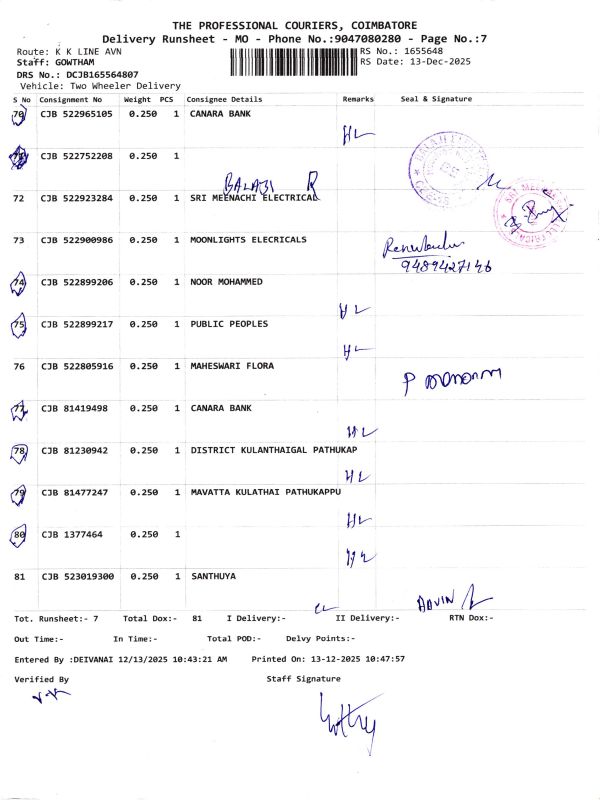 THE PROFESSIONAL COURIERS, COIMBATORE
Delivery Runsheet - MO - Phone No.:9047080280 - Page No.:7
Route: K K LINE AVN RS No.: 1655648
Staff: GOWTHAM RS Date: 13-Dec-2025
DRS No.: DCJB165564807
Vehicle: Two Wheeler Delivery
S No Consignment No Weight PCS Consignee Details Remarks Seal & Signature
70 CJB 522965105 0.250 1 CANARA BANK
HL
CJB 522752208 0.250 1
BALAJI R
72 CJB 522923284 0.250 1 SRI MEENACHI ELECTRICAL
73 CJB 522900986 0.250 1 MOONLIGHTS ELECRICALS
9489427146
74 CJB 522899206 0.250 1 NOOR MOHAMMED
HL
75 CJB 522899217 0.250 1 PUBLIC PEOPLES
HL
76 CJB 522805916 0.250 1 MAHESWARI FLORA
77 CJB 81419498 0.250 1 CANARA BANK
HL
78 CJB 81230942 0.250 1 DISTRICT KULANTHAIGAL PATHUKAP
HL
79 CJB 81477247 0.250 1 MAVATTA KULATHAI PATHUKAPPU
HL
80 CJB 1377464 0.250 1
HL
81 CJB 523019300 0.250 1 SANTHUYA
ADVIN
Tot. Runsheet:- 7 Total Dox:- 81 I Delivery:- II Delivery:- RTN Dox:-
Out Time:- In Time:- Total POD:- Delvy Points:-
Entered By :DEIVANAI 12/13/2025 10:43:21 AM Printed On: 13-12-2025 10:47:57
Verified By Staff Signature